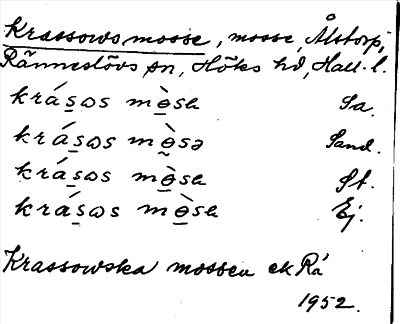 Krassows mosse, mosse, Ålstorp,
Ränneslövs sn, Höks hd, Hall. l.
krá̱sɷs mò̱sa Sa.
krá̱sɷs mò̱sə Sand.
krá̱sɷs mò̱sa St.
krá̱sɷs mò̱sa Ej.
Krassowska mossen ek Rä
1952.